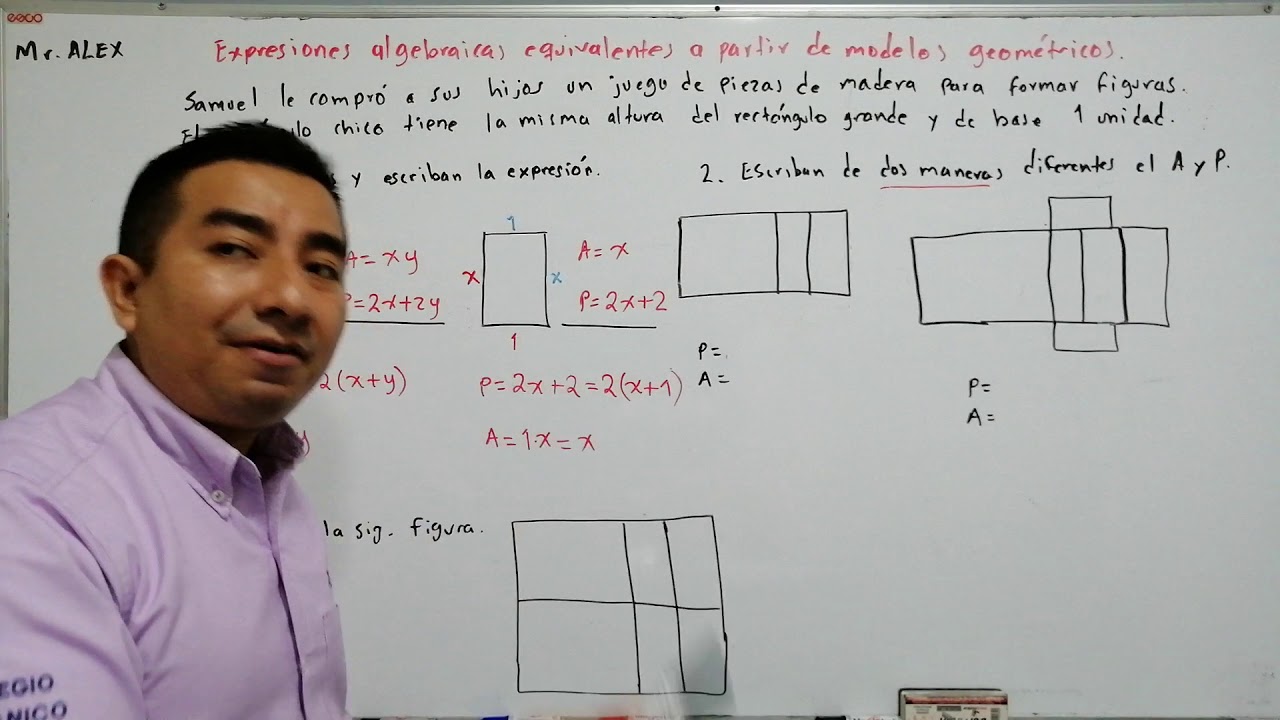 Mr. ALEX
Expresiones algebraicas equivalentes a partir de modelos geométricos.
Samuel le compró a sus hijos un juego de piezas de madera para formar figuras.
El chico tiene la misma altura del rectángulo grande y de base 1 unidad.
y escriban la expresión.
2. Escriban de dos maneras diferentes el A y P.
1
A = xy
x
x
A = x
P = 2x + 2y
P = 2x + 2
1
P =
A =
2(x+y)
P = 2x + 2 = 2(x+1)
A = 1·x = x
P =
A =
la sig. figura.
EGIO
NICO